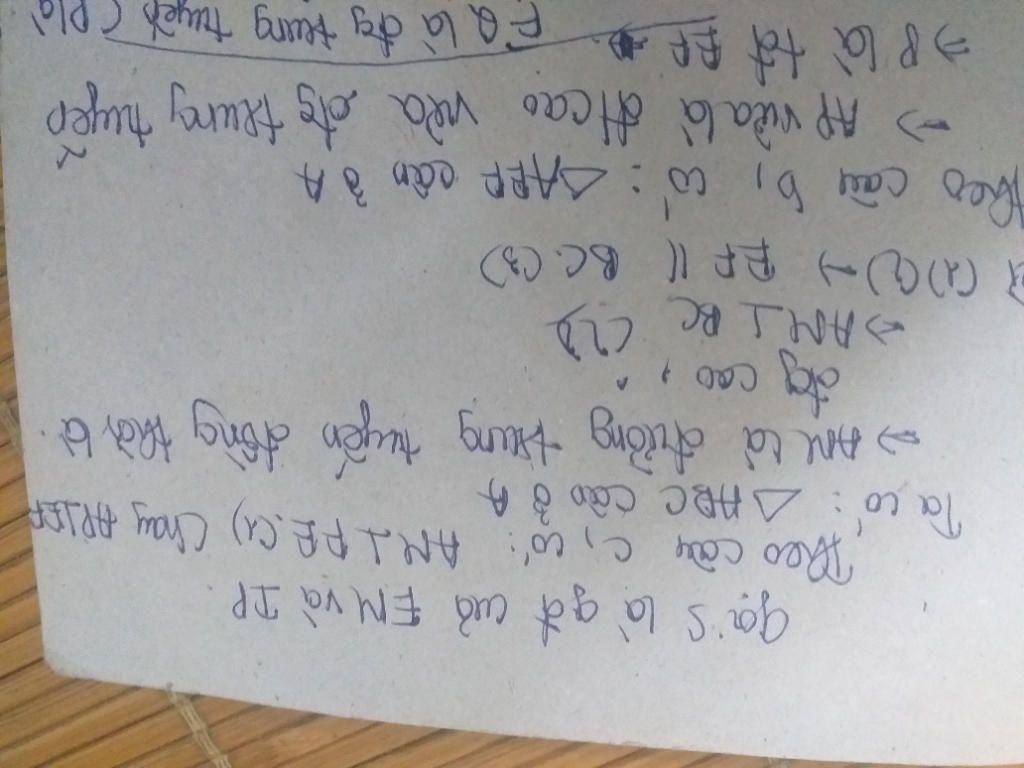 Gọi S là gđ của FM và IP.
Theo câu c, có: AM ⊥ FE (1) (hay AP ⊥ EF
Ta có: △ ABC cân ở A
⇒ AM là đường trung tuyến đồng thời là
đg cao,
⇒ AM ⊥ BC (2)
(1) (2) ⇒ EF // BC (3)
Theo câu b, có: △AEF cân ở A
⇒ AP vừa là đcao vừa đg trung tuyến
⇒ P là tđ EF
FQ là đg trung tuyến (P là